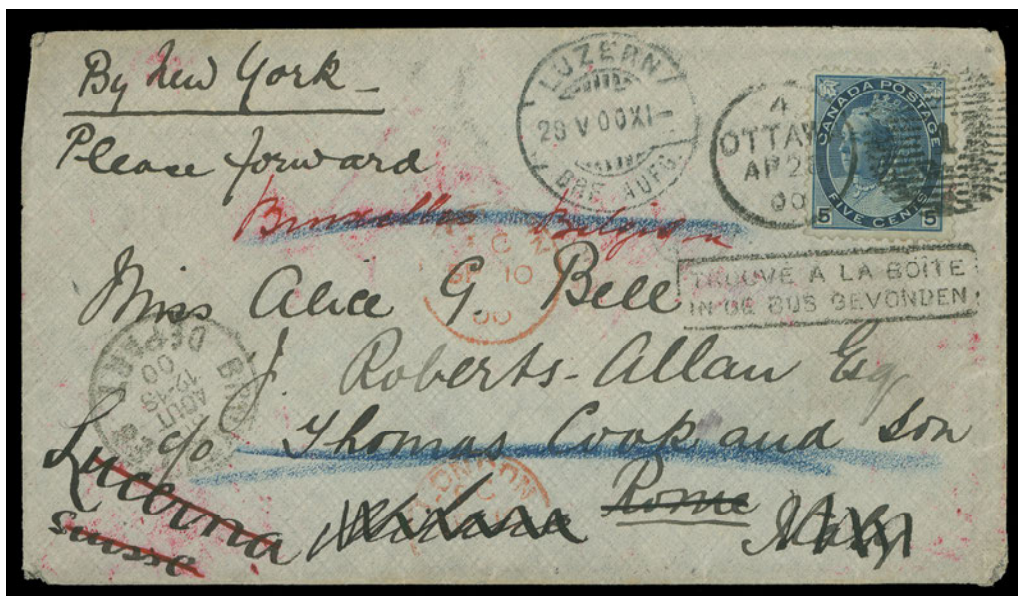 By New York
Please forward
LUZERN
28 V 00 XI
BRF. AUFG.
4
OTTAW
AP 28
00
1
CANADA POSTAGE
5 FIVE CENTS 5
Bruxelles Belgium
SP 10
00
TROUVÉ À LA BOÎTE
IN DE BUS GEVONDEN
Miss Alice G. Bell
J. Roberts-Allan Esq
c/o Thomas Cook and Son
DEPART
AOUT
00
LONDON
Rome
Italy
Lucerna
Suisse